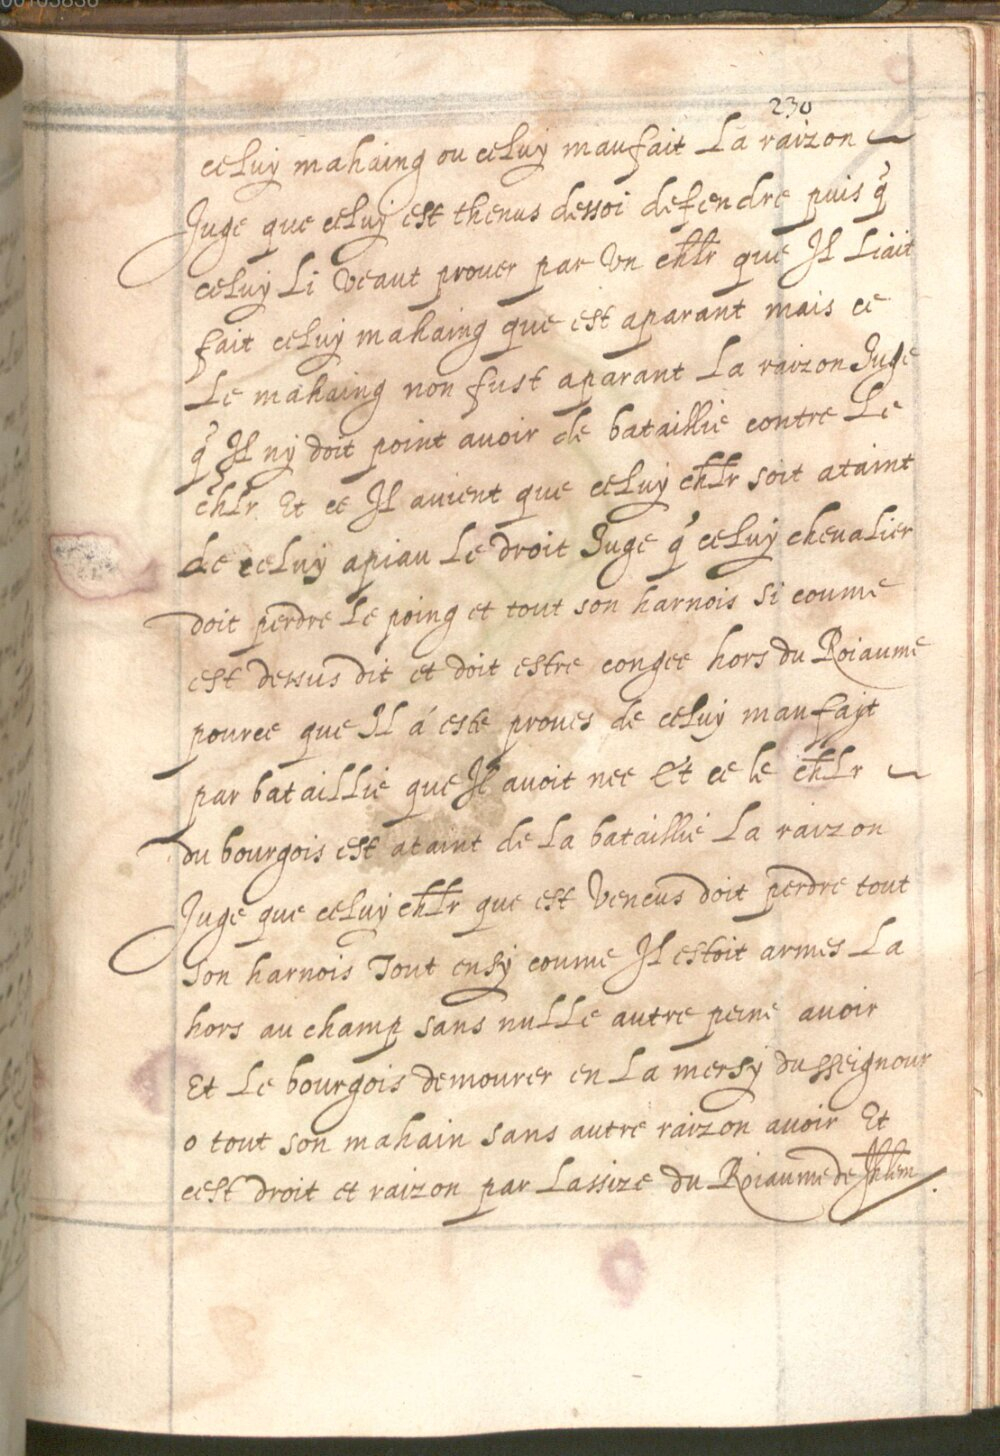 230
celuy mahaing ou celuy maufait La raizon
Juge que celuy est thenus dessoi defendre puis q̃
celuy Li veaut prouer par vn chlr que Il Liait
fait celuy mahaing que est aparant mais ce
Le mahaing non fust aparant La raizon Juge
q̃ Il ny doit point auoir de bataillie contre Le
chlr Et ce Il auient que celuy chlr soit ataint
de celuy apiau Le droit Juge q̃ celuy cheualier
doit perdre Le poing et tout son harnois si coume
est dessus dit et doit estre congee hors du Roiaume
pource que Il á este proues de celuy maufayt
par bataillie que Il auoit nee Et ce le chlr
du bourgois est ataint de La bataillie La raizon
Juge que celuy chlr que est Vencus doit perdre tout
son harnois Tout ensy coume Il estoit armes La
hors au champ sans nulle autre peine auoir
Et Le bourgois demourer en La mersy du sseignour
o tout son mahain sans autre raizon auoir Et
cest droit et raizon par Lassize du Roiaume de Jhlem